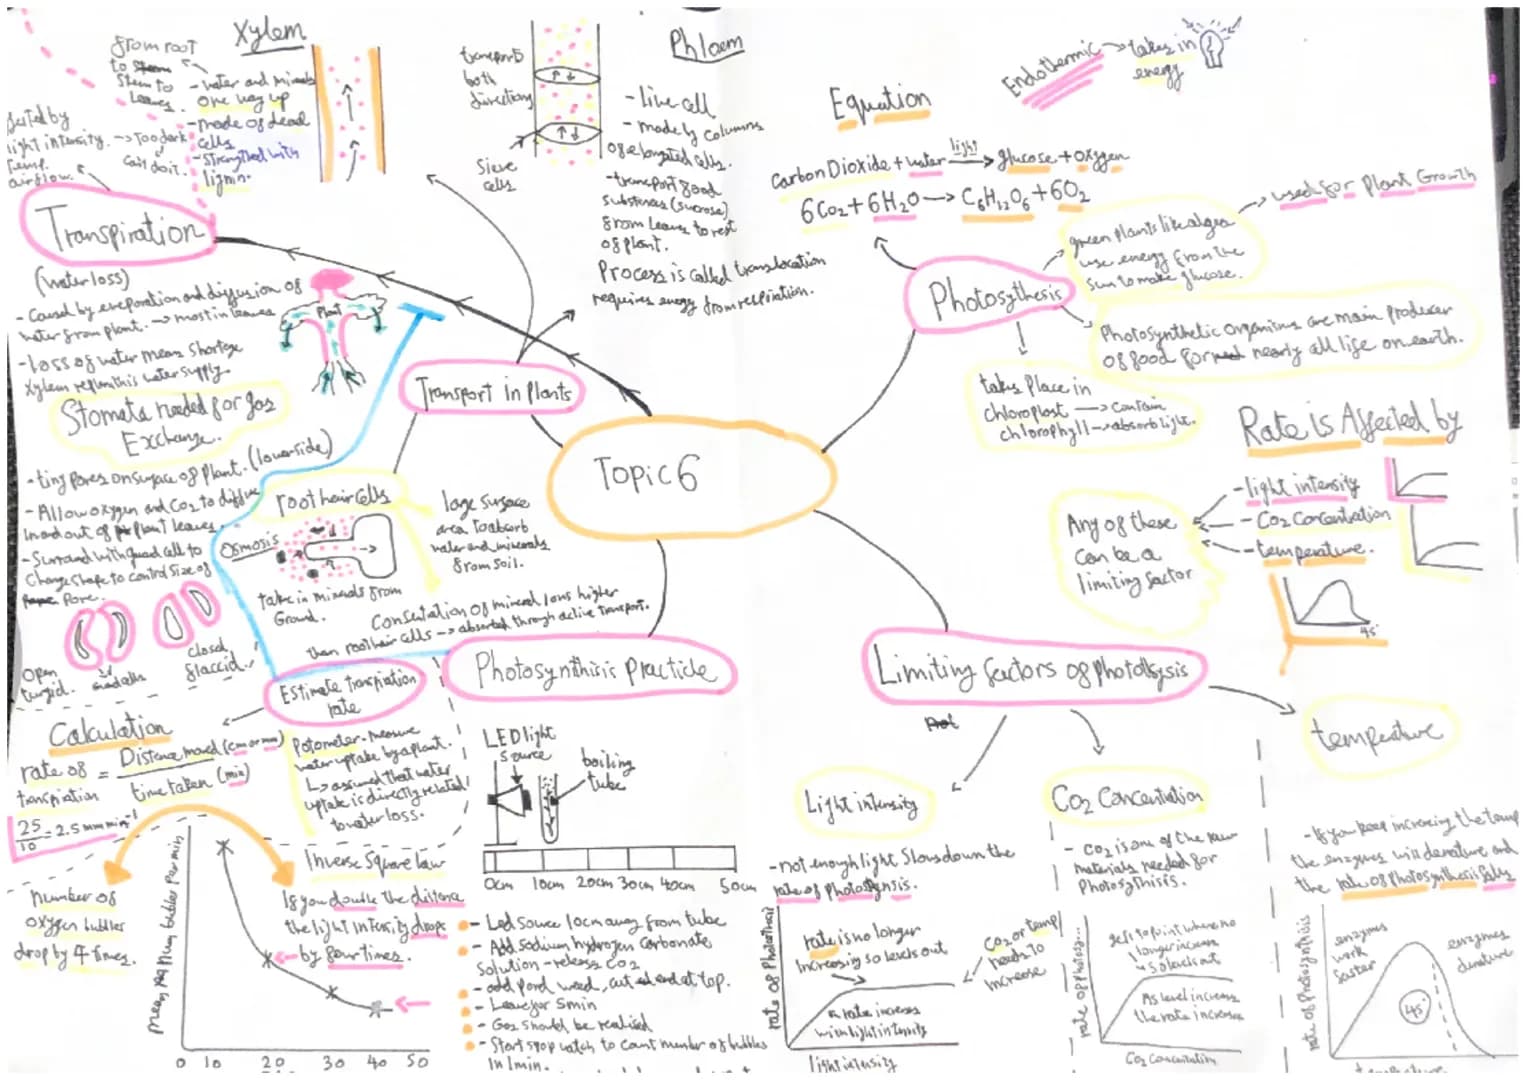 Xylem
from root
to stem
Stem to
Leaves.
- water and minerals
one way up
- made of dead
cells
- strengthed with
lignin.
light intensity. -> Too dark
can't do it.
Temp.
airflow.
Transpiration
(water loss)
- Caused by evaporation and diffusion of
water from plant. -> most in leaves
- Loss of water mean shortage
Xylem replenithis water supply.
Plant
Stomata needed for gas
Exchange.
- tiny pores on surface of plant. (lowerside)
- Allow oxygen and CO2 to diffuse
in and out of plant leaves.
- Surround with guard cell to
Change shape to control size of
Pore.
Open
turgid.
closed
flaccid.
transports
both
directions
Sieve
cells
Phloem
- Live cell
- made by columns
of elongated cells.
- transport food
substances (sucrose)
from leaves to rest
of plant.
Process is called translocation
requires energy from respiration.
Transport in Plants
root hair cells
large surface
area to absorb
water and minerals
from soil.
Osmosis
take in minerals from
Ground.
of mineral ions higher
than root hair cells -> absorbed through active transport.
Topic 6
Equation
Endothermic -> takes in
energy
Carbon Dioxide + water light -> glucose + oxygen
6CO2 + 6H2O -> C6H12O6 + 6O2
Photosythesis
green plants like algea
use energy from the
sun to make glucose.
-> used for Plant Growth
Photosynthetic Organisms are main producer
of food for nearly all life on earth.
takes place in
chloroplast -> contain
chlorophyll -> absorb light.
Rate is Affected by
- light intensity
- CO2 Concentration
- temperature.
45°
Any of these
can be a
limiting factor
Limiting factors of
Light intensity
- not enough light Slows down the
rate of
rate is no longer
increasing so levels out
rate increases
with light intensity
light intensity
CO2 or temp
needs to
increase
CO2 Concentration
- CO2 is one of the raw
materials needed for
Photosythisis.
gets to point where no
longer increase
so levels out
As level increases
the rate increases
CO2 Concentration
temperature
- If you keep increasing the temp
the enzymes will denature and
the rate of Photosynthesis falls
rate of Photosynthisis
enzymes
work
faster
45°
enzymes
denature
temperature
Photosynthisis practicle
LED light
source
boiling
tube
0cm 10cm 20cm 30cm 40cm 50cm
- Led source 10cm away from tube
- Add sodium hydrogen carbonate
solution - release CO2
- add pond weed, cut end at top.
- Leave for 5min
- Gas should be realised
- Start stop watch to count number of bubbles
in 1min.
Estimate transpiration
rate
Potometer - measure
water uptake by a plant.
assumed that water
uptake is directly related
to water loss.
Calculation
rate of transpiration = Distance moved (cm or mm)
time taken (min)
25
10 = 2.5 mm min⁻¹
number of
oxygen bubbles
drop by 4 times.
Inverse Square law
If you double the distance
the light intensity drops
by four times.
0 10 20 30 40 50